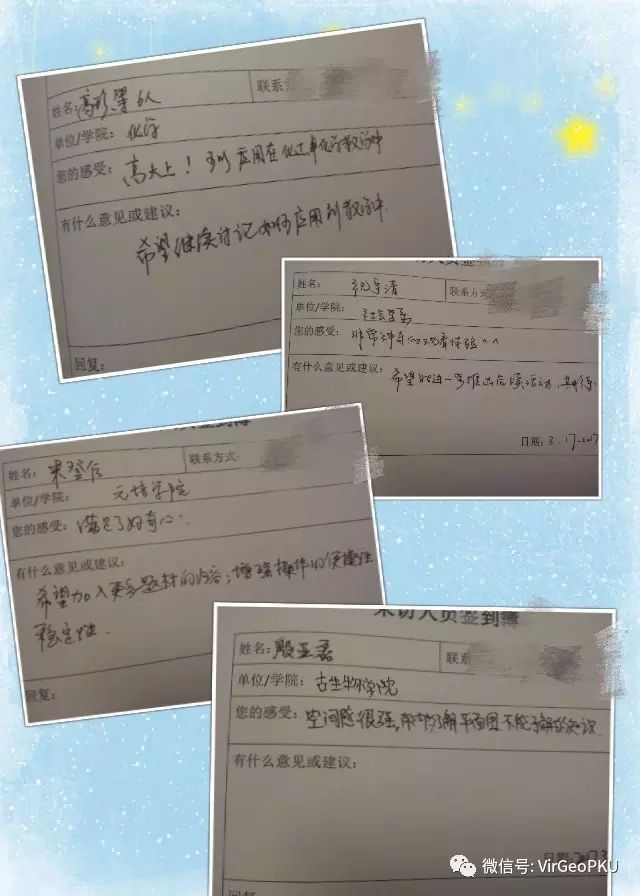 联系
姓名: 高珍等6人
单位/学院: 化学
您的感受: 高大上! 可以应用在化工单化学教学中
有什么意见或建议:
希望继续讨论如何应用到教学中.
回复:
姓名:
联系方式:
单位/学院:
您的感受: 非常神奇的观看体验^^
有什么意见或建议: 希望能进一步推出后续活动,
日期: 3.17.2017
姓名: 朱登
联系方式:
单位/学院: 元培学院
您的感受: 满足了好奇心.
有什么意见或建议:
希望加入更多题材的内容; 增强操作的便捷性
稳定性.
回复:
来访人员签到簿
姓名: 殷亚磊
联系
单位/学院: 古生物学院
您的感受: 空间感很强, 帮助了解平面图不能了解的知识
有什么意见或建议:
日期: 2017.3
回复
微信号: VirGeoPKU